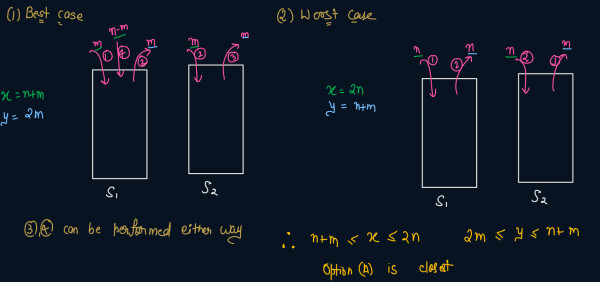 (1) Best case
n-m
m ① ④ m ②
m ① m ③
x = n+m
y = 2m
S₁ S₂
③,④ can be performed either way
(2) Worst case
n ① n ②
n ② n
x = 2n
y = n+m
S₁ S₂
∴ n+m ≤ x ≤ 2n 2m ≤ y ≤ n+m
Option (A) is closest